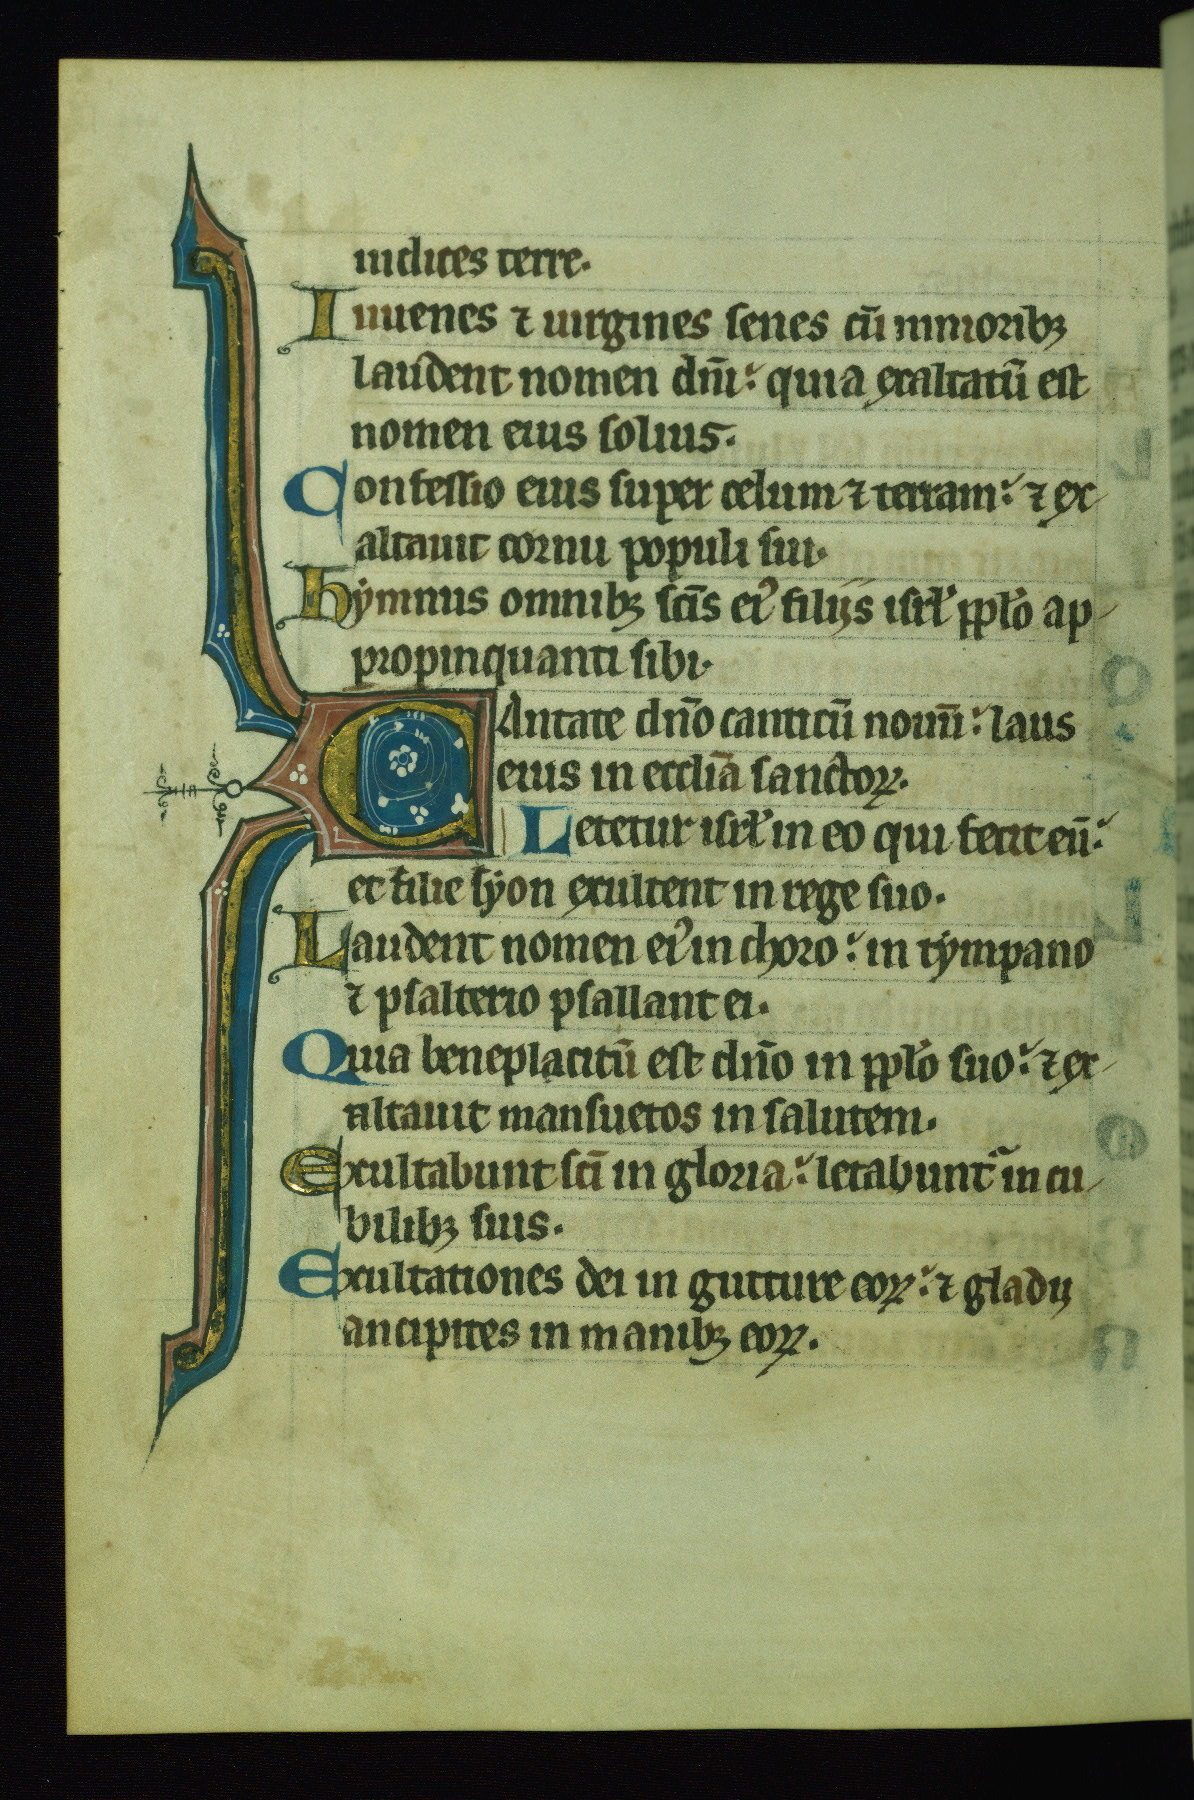 iudices terre.
Iuuenes ⁊ uirgines senes cū iunioribꝫ
laudent nomen dn̄i: quia exaltatū est
nomen eius solius.
Confessio eius super celum ⁊ terram: ⁊ ex
altauit cornu populi sui.
hẏmnus omnibꝫ scīs eiꝰ filijs isrl̄ ppl̄o ap-
propinquanti sibi.
CAntate dn̄o canticū nouū: laus
eius in ecclīa sanctoꝝ.
Letetur isrl̄ in eo qui fecit eū:
et filie sẏon exultent in rege suo.
Laudent nomen eiꝰ in choro: in tẏmpano
⁊ psalterio psallant ei.
Quia beneplacitū est dn̄o in ppl̄o suo: ⁊ ex-
altauit mansuetos in salutem.
Exultabunt scī in gloria: letabunt᷑ in cu-
bilibꝫ suis.
Exultationes dei in gutture eoꝝ: ⁊ gladij
ancipites in manibꝫ eoꝝ.